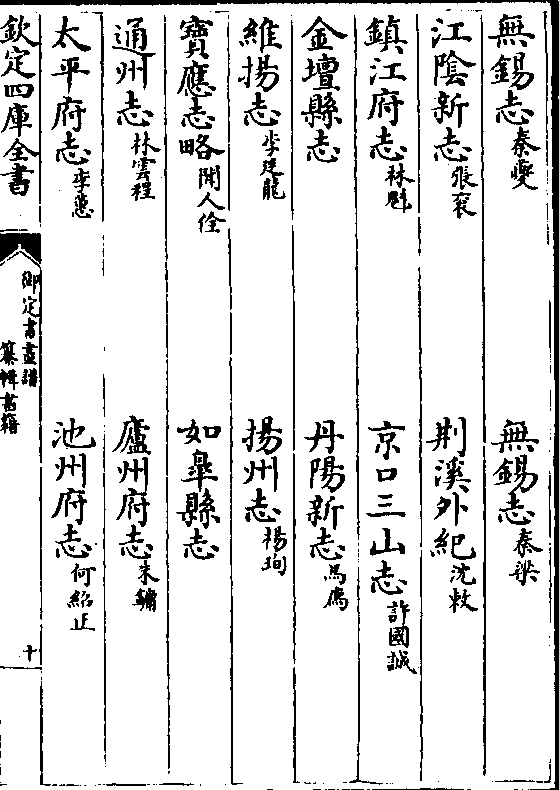 無錫志秦夔　無錫志秦梁
江陰新志張袞　荆溪外紀沈敕
鎮江府志林魁　京口三山志許國誠
金壇縣志　丹陽新志馬鷹
維揚志李廷龍　揚州志楊珣
寶應志略聞人佺　如臯縣志
通州志林雲程　廬州府志朱鏞
太平府志李蕙　池州府志何紹正
欽定四庫全書　御定書畫譜　纂輯書籍　十